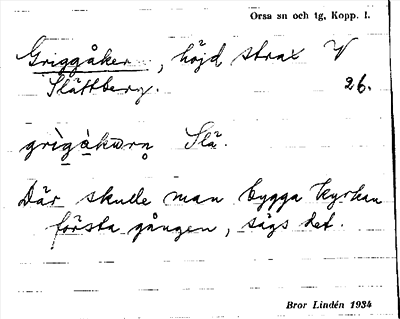 Orsa sn och tg, Kopp. l.
Griggåker, höjd strax V
Slättberg. 26.
grìgåkørn Slä.
Där skulle man bygga kyrkan
första gången, sägs det.
Bror Lindén 1934